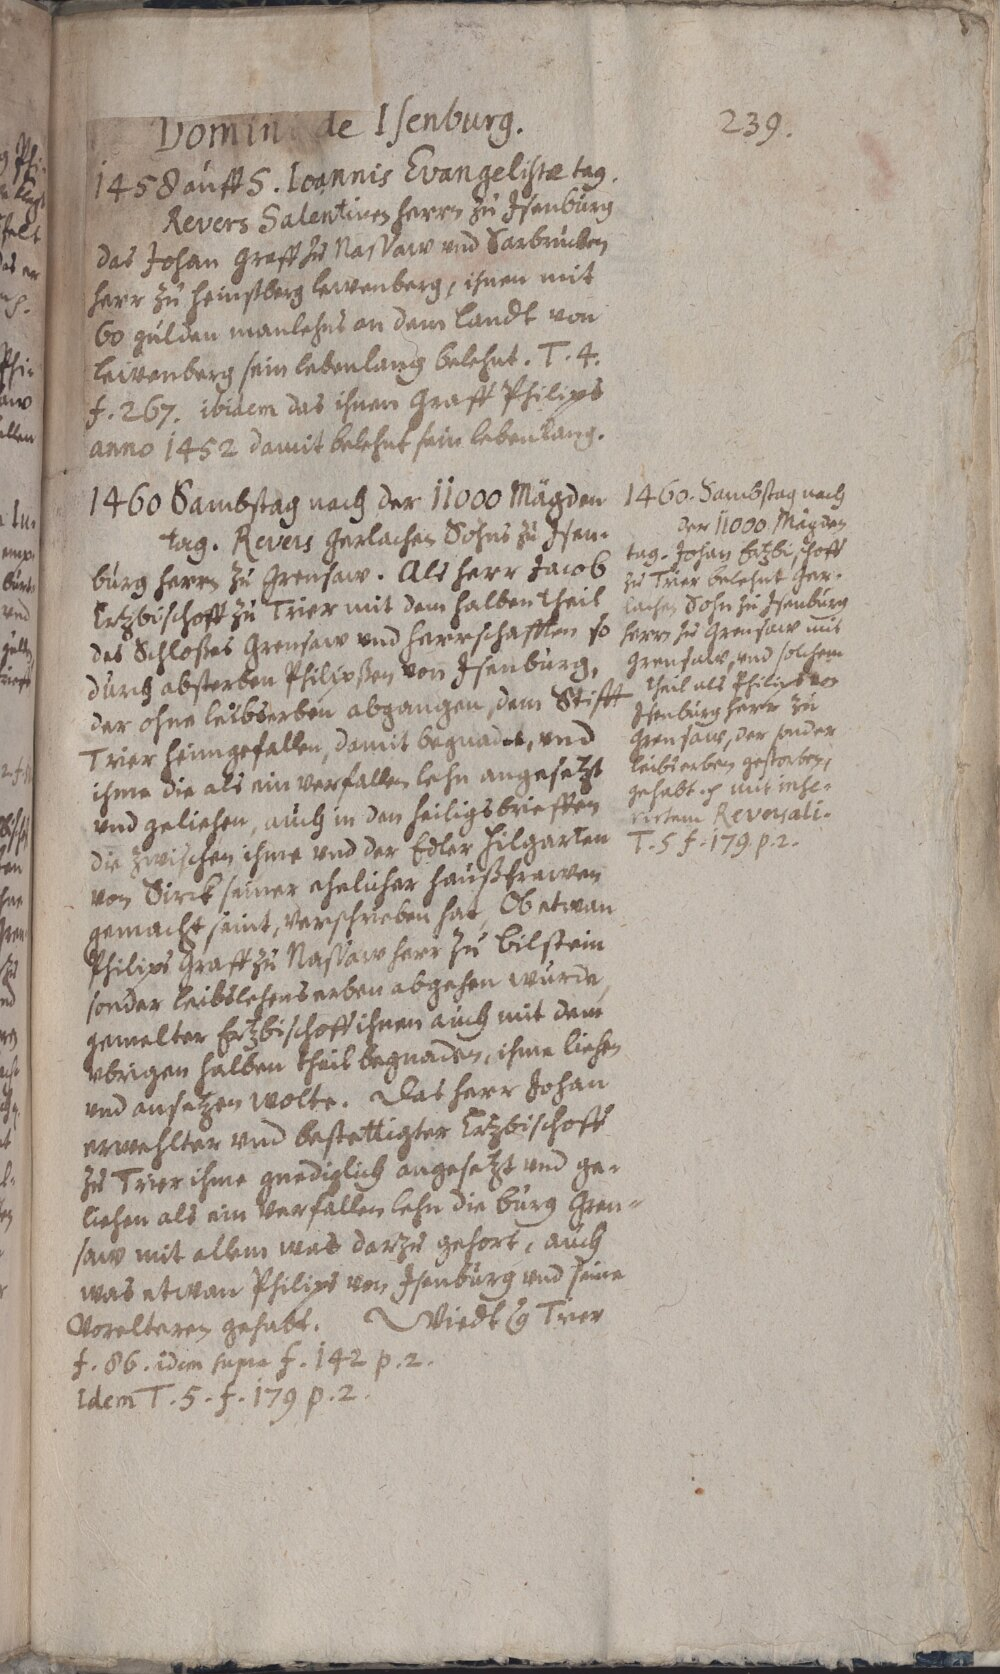 Domin de Isenburg.
239.
1458 auff S. Ioannis Evangelistæ tag.
Revers Salentines herrn zu Isenburg
das Johan Graff zu Nassaw und Sarbrucken
herr zu heinssberg lewenberg, ihnen mit
60 gulden manlehns an dem landt von
lewenberg sein lebenlang belehnt. T. 4.
f. 267. ibidem das ihnen Graff Philips
anno 1452 damit belehnt sein lebenlang.
1460 Sambstag nach der 11000 Mägden
tag. Revers Gerlachen Sohns zu Isen-
burg herrn zu Grensaw. Als herr Jacob
Ertzbischoff zu Trier mit dem halben theil
des Schlosses Grensaw und herrschafften so
durch absterben Philipssen von Isenburg,
der ohne leibserben abgangen, dem Stifft
Trier heimgefallen, damit begnadet, und
ihme die als ein verfallen lehn angesetzt
und geliehen, auch in den heiligsbrieffen
die zwischen ihme und der Edler hilgarten
von Sirck seiner ehelicher haussfrawen
gemacht seint, verschrieben hat, Ob etwan
Philips Graff zu Nassaw herr zu bilstein
sonder leibslehens erben abgehen wurde,
gemelter Ertzbischoff ihnen auch mit dem
ubrigen halben theil begnaden, ihme liehen
und ansetzen wolte. Das herr Johan
erwehlter und bestettigter Ertzbischoff
zu Trier ihme gnediglich angesetzt und ge-
liehen als ein verfallen lehn die burg Gren-
saw mit allem was darzu gehort, auch
was etwan Philips von Isenburg und seine
Vorelteren gehabt. Wiedt Trier
f. 86. idem supra f. 142 p. 2.
Idem T. 5. f. 179 p. 2.
1460. Sambstag nach
der 11000 Mägden
tag. Johan Ertzbischoff
zu Trier belehnt Ger-
lachen Sohn zu Isenburg
herrn zu Grensaw mit
Grensaw, und solchem
theil als Philips von
Isenburg herr zu
Grensaw, der sonder
leibserben gestorben,
gehabt. mit inse-
rirtem Reversali.
T. 5 f. 179. p. 2.